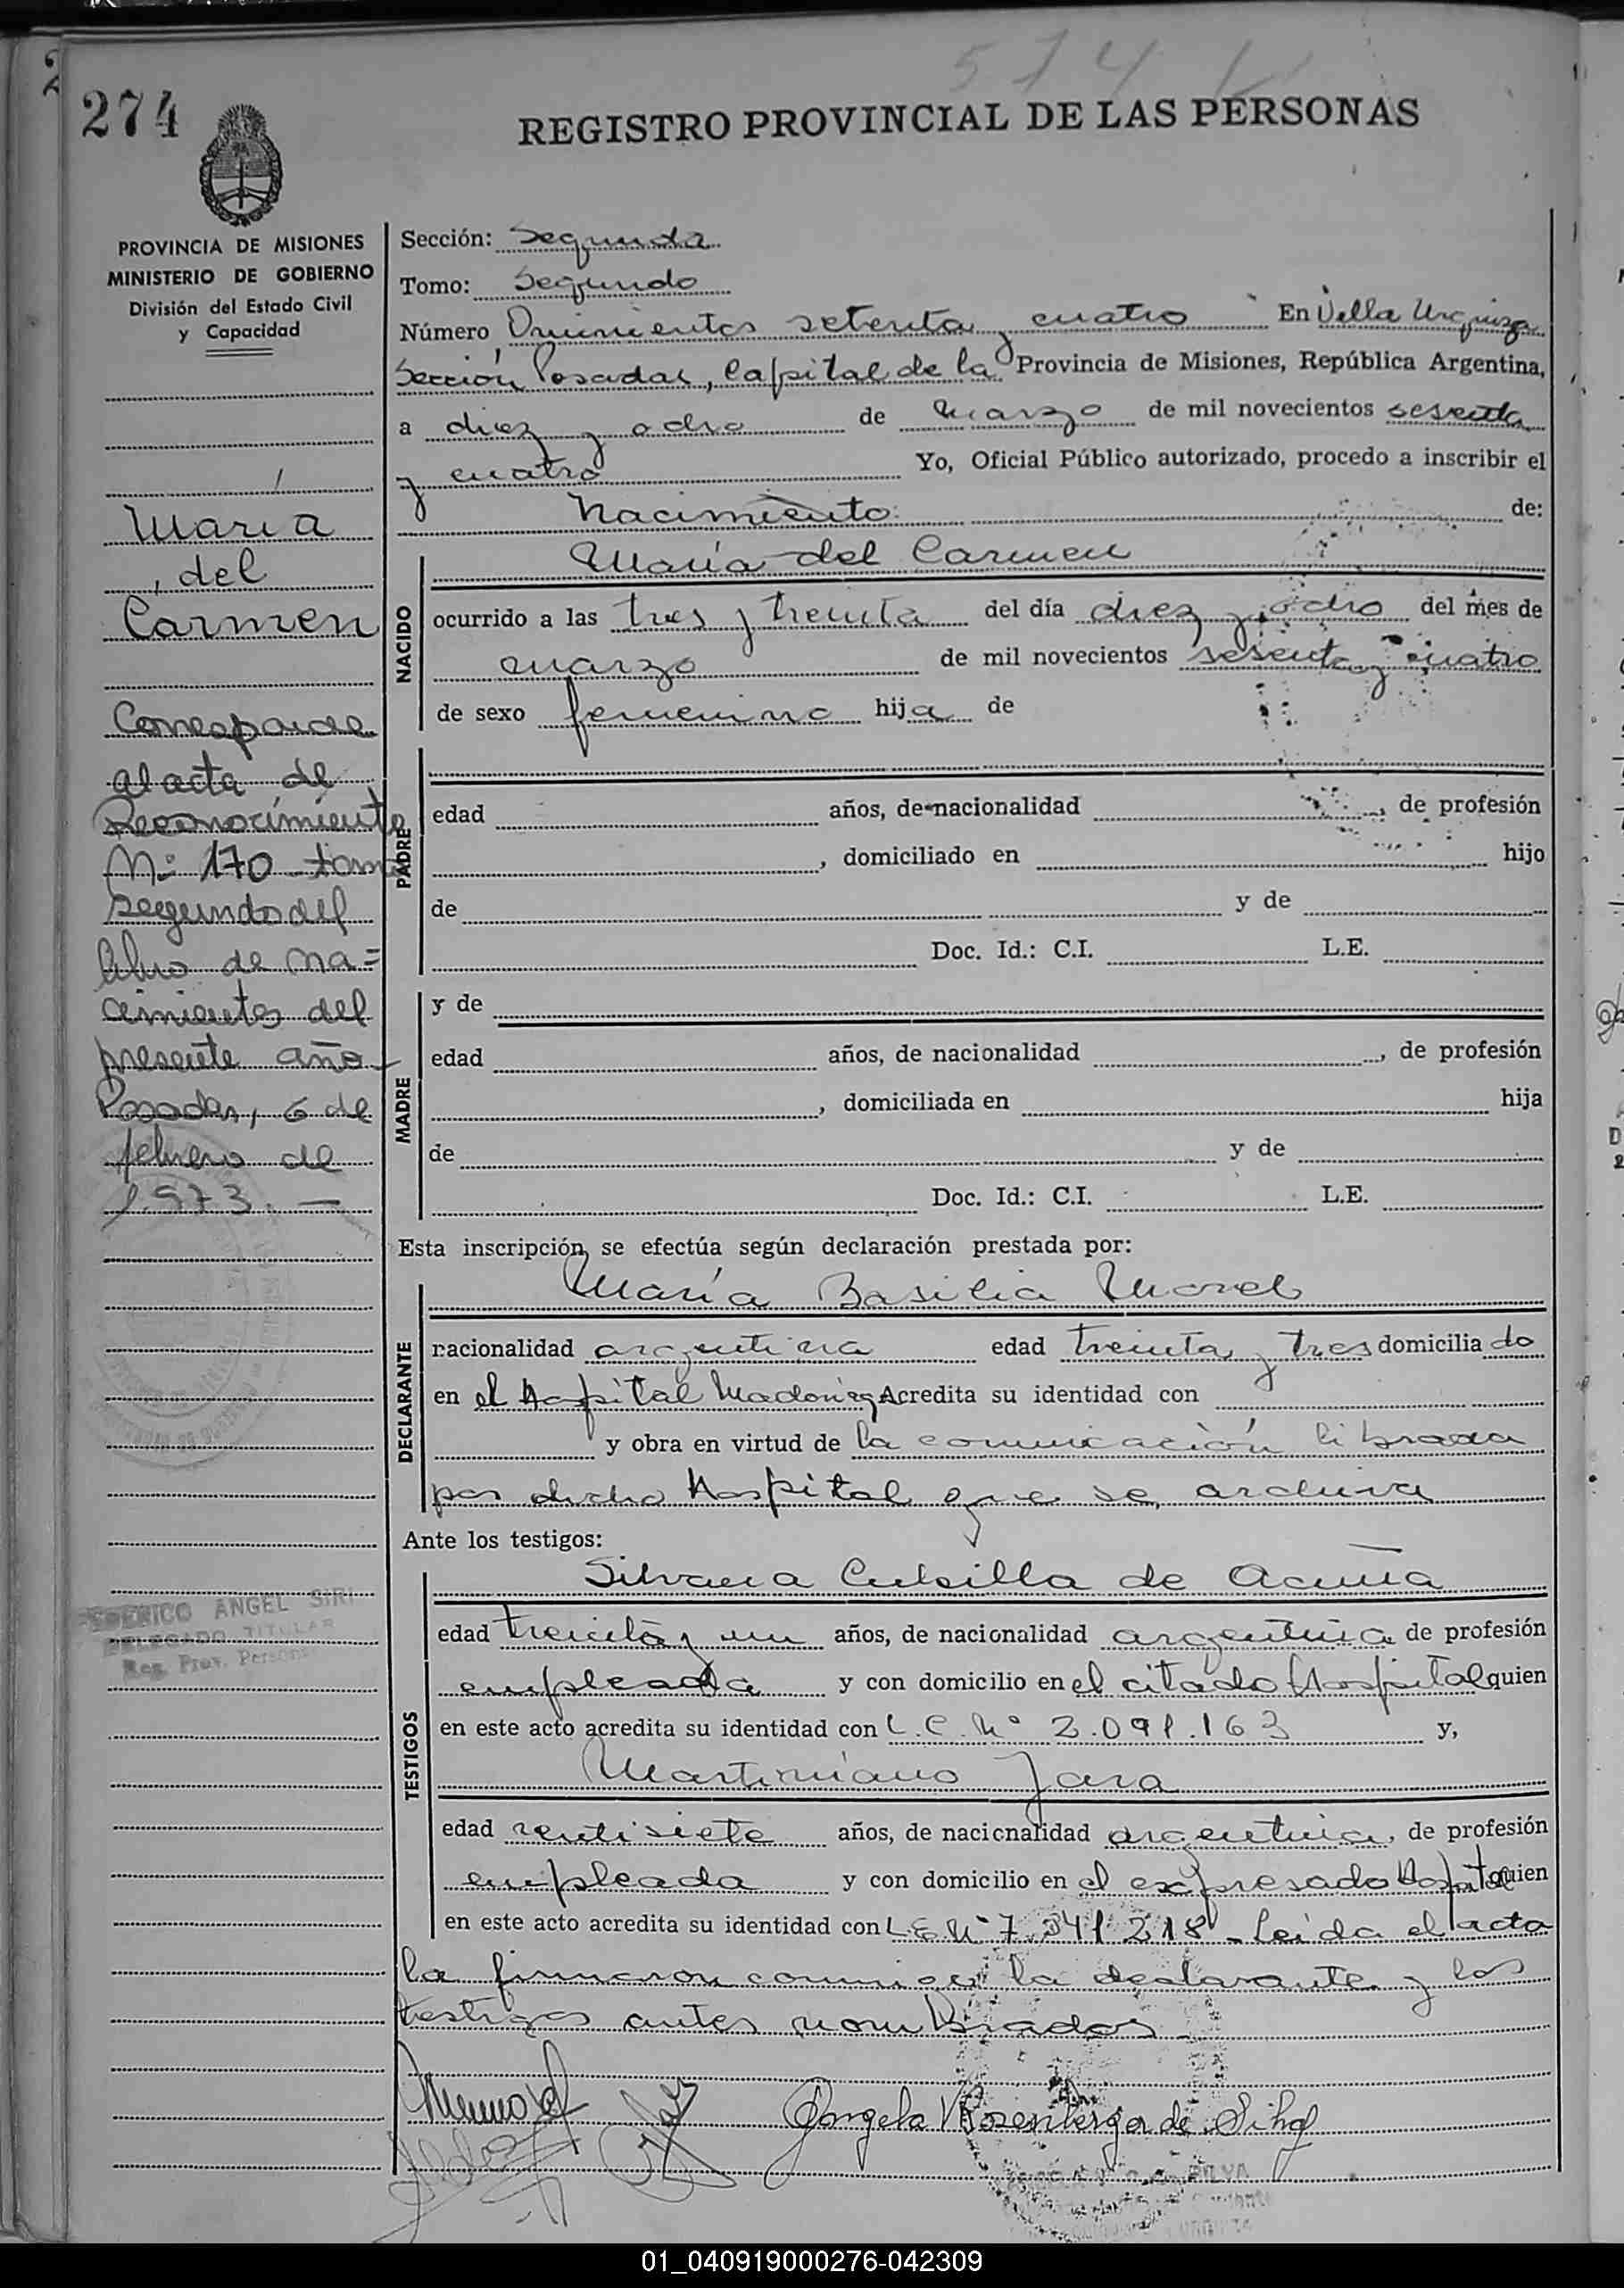 574
274
REGISTRO PROVINCIAL DE LAS PERSONAS
PROVINCIA DE MISIONES
MINISTERIO DE GOBIERNO
División del Estado Civil
y Capacidad
María
del
Carmen
Corresponde
al acta de
Reconocimiento
Nº 170 tomo
segundo del
libro de na=
cimientos del
presente año
Posadas, 6 de
febrero de
1.973.—
FEDERICO ANGEL SIRI
DELEGADO TITULAR
Reg. Prov. Personas
Sección: Segunda
Tomo: Segundo
Número Quinientos setenta y cuatro En Villa Urquiza
Sección Posadas, Capital de la Provincia de Misiones, República Argentina,
a diez y ocho de marzo de mil novecientos sesenta
y cuatro Yo, Oficial Público autorizado, procedo a inscribir el
Nacimiento de:
María del Carmen
NACIDO
ocurrido a las tres y treinta del día diez y ocho del mes de
marzo de mil novecientos sesenta y cuatro
de sexo femenino hija de
PADRE
edad años, de nacionalidad , de profesión
, domiciliado en hijo
de y de
Doc. Id.: C.I. L.E.
MADRE
y de
edad años, de nacionalidad , de profesión
, domiciliada en hija
de y de
Doc. Id.: C.I. L.E.
Esta inscripción se efectúa según declaración prestada por:
DECLARANTE
María Basilia Morel
nacionalidad argentina edad treinta y tres domiciliado
en el Hospital Madariaga Acredita su identidad con
y obra en virtud de la comunicación librada
por dicho Hospital que se archiva
Ante los testigos:
TESTIGOS
Silvana Cubilla de Acuña
edad treinta y un años, de nacionalidad argentina de profesión
empleada y con domicilio en el citado Hospital quien
en este acto acredita su identidad con L.C. Nº 2.091.163 y,
Martiniano Jara
edad ventisiete años, de nacionalidad argentina, de profesión
empleada y con domicilio en el expresado Hospital quien
en este acto acredita su identidad con L.E. Nº 7.541.218 - Leida el acta
la firmaron conmigo la declarante y los
testigos antes nombrados
Angela Rosenberger de Silva
SILVA
01_040919000276-042309